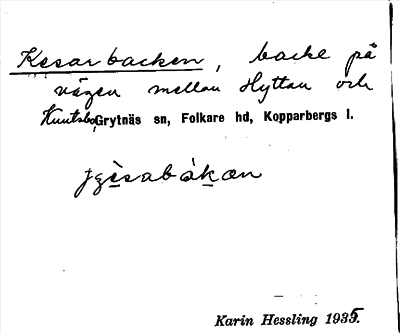 Kesarbacken, backe på
vägen mellan Hyttan och
Knutsbo, Grytnäs sn, Folkare hd, Kopparbergs l.
Karin Hessling 1935.